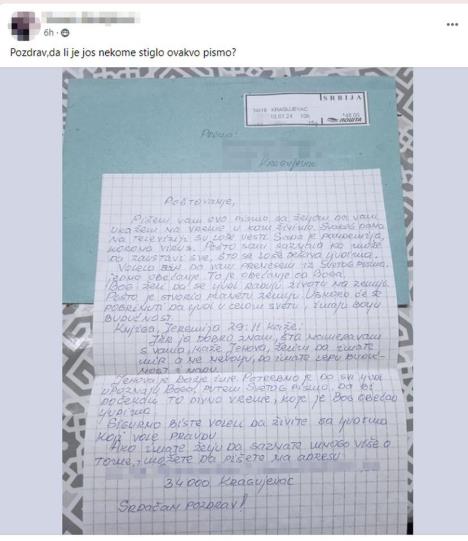 6h
Pozdrav,da li je jos nekome stiglo ovakvo pismo?
SRBIJA
KRAGUJEVAC
ПОШТА
Kragujevac
Poštovanje,
Pišem vam ovo pismo sa željom da vam
ukažem na vreme u kom živimo. Svakog dana
na televiziji su loše vesti. Sada je pandemija,
korona virus. Pošto sam saznala ko može
da zaustavi sve, što se loše dešava ljudima.
Volela bih da vam prenesem iz Svetog pisma
jedno obećanje. To je obećanje od Boga.
Bog želi da se ljudi raduju životu na zemlji.
Pošto je stvorio planetu zemlju uskoro će se
pobrinuti da ljudi u celom svetu, imaju bolju
budućnost.
Knjiga, Jeremija 29:11 kaže:
Jer ja dobro znam, šta nameravam
s vama, kaže Jehova, želim da imate
mir, a ne nevolju, da imate lepu buduć-
nost i nadu.
Jehova je Božje ime. Potrebno je da se ljudi
upoznaju Boga, putem Svetog pisma, da bi
dočekali to divno vreme, koje je Bog obećao
ljudima.
Sigurno biste voleli da živite sa ljudima
koji vole pravdu
Ako imate želju da saznate mnogo više o
tome, možete da pišete na adresu
34000 Kragujevac
Srdačan pozdrav!